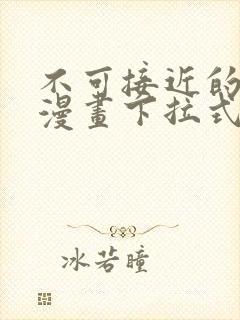 不可接近的
漫畫下拉式
冰若瞳